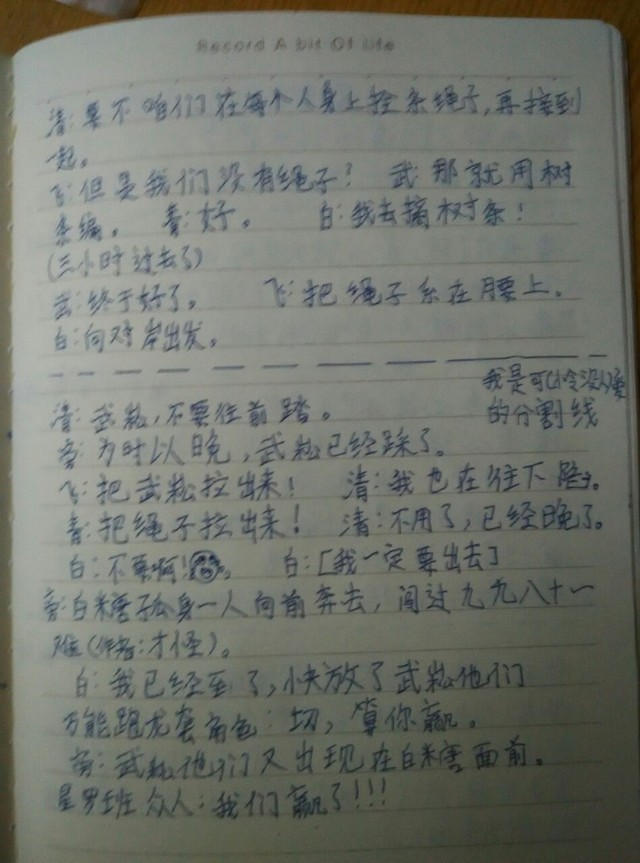 Record A bit Of life
清:要不咱们在每个人身上拴条绳子,再接到
一起。
飞:但是我们没有绳子? 武:那就用树
条编。 青:好。 白:我去摘树条!
(三小时过去了)
武:终于好了。 飞:把绳子系在腰上。
白:向对岸出发。
我是可以令没人爱
的分割线
清:武崧,不要往前踏。
旁:为时以晚,武崧已经踩了。
飞:把武崧拉出来! 清:我也在往下陷。
青:把绳子拉出来! 清:不用了,已经晚了。
白:不要啊! 白:[我一定要出去]
旁:白糖孤身一人向前奔去,闯过九九八十一
难(作者:才怪)。
白:我已经至了,快放了武崧他们
万能跑龙套角色:切,算你赢。
旁:武崧他们又出现在白糖面前。
星罗班众人:我们赢了!!!